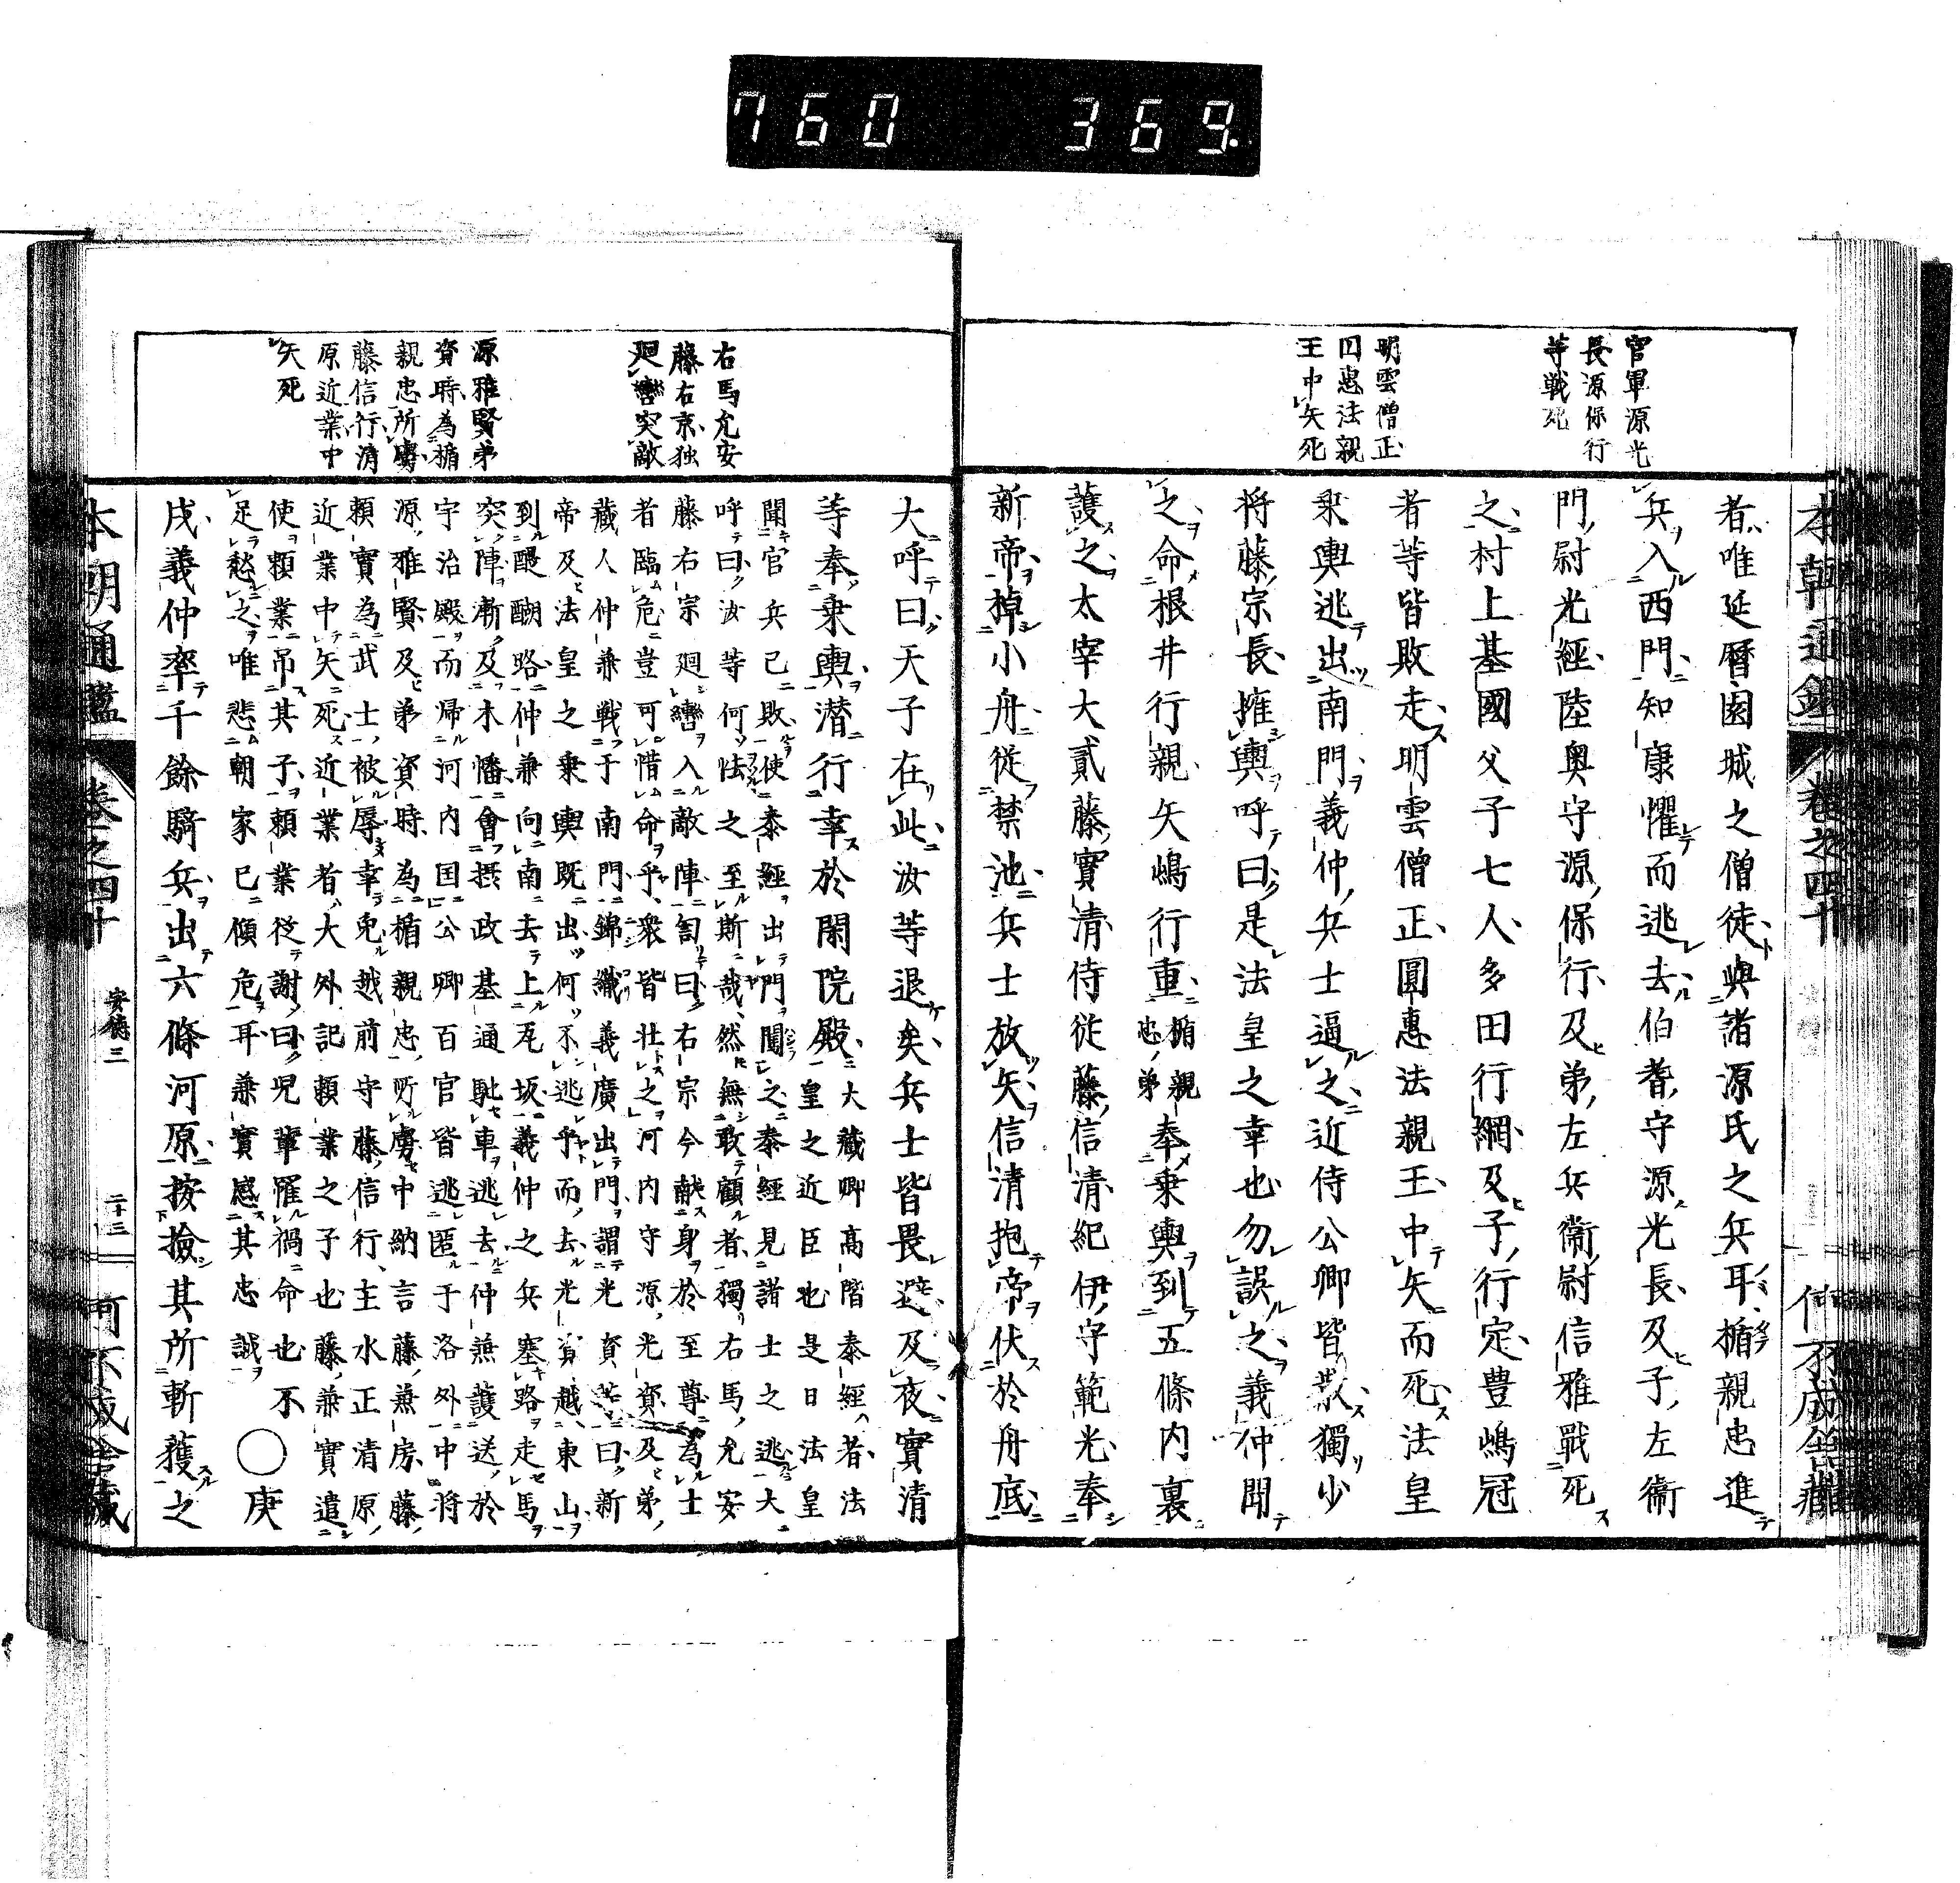 760 369.
官軍源光
長源保行
等戦死
明雲僧正
円惠法親
王中矢死
本朝通鑑 卷之四十
者唯延曆園城之僧徒與諸源氏之兵耳楯親忠進
兵入西門知康懼而逃去伯耆守源光長及子左衞
門尉光經陸奧守源保行及弟左兵衞尉信雅戰死
之村上基國父子七人多田行綱及子行定豊嶋冠
者等皆敗走明雲僧正圓惠法親王中矢而死法皇
乘輿逃出南門義仲兵士逼之近侍公卿皆散獨少
将藤宗長擁輿呼曰是法皇之幸也勿誤之義仲聞
之命根井行親矢嶋行重楯親忠弟奉乗輿到五條内裏
護之太宰大貳藤實清侍從藤信清紀伊守範光奉
新帝棹小舟從禁池兵士放矢信清抱帝伏於舟底
右馬允安
藤右京独
廻轡突敵
源雅賢弟
資時為楯
親忠所虜
藤信行清
原近業中
矢死
大呼曰天子在此汝等退矣兵士皆畏避及夜實清
等奉乗輿潜行幸於閑院殿大藏卿高階泰經者法
皇之近臣也是日法皇
聞官兵已敗使泰經出門闚之泰經見諸士之逃大
呼曰汝等何怯之至斯哉然無敢顧者獨右馬允安
藤右宗廻轡入敵陣訇曰右宗今献身於至尊為士
者臨危豈可惜命乎衆皆壮之河内守源光資及弟
藏人仲兼戦于南門錦織義廣出門謂光資等曰新
帝及法皇之乗輿既出何不逃乎而去光資越東山
到醍醐路仲兼向南去上瓦坂義仲之兵塞路走馬
突陣漸及木幡會摂政基通馳車逃去仲兼護送於
宇治殿而帰河内国公卿百官皆逃匿于洛外中将
源雅賢及弟資時為楯親忠所虜中納言藤兼房藤
頼實為武士被辱幸免越前守藤信行主水正清原
近業中矢死近業者大外記頼業之子也藤兼實遣
使頼業吊其子頼業從謝曰児輩罹禍命也不
足愁之唯悲朝家已傾危耳兼實感其忠誠○庚
戌義仲率千餘騎兵出六條河原按撿其所斬獲之
本朝通鑑 卷之四十 安德三 二十三